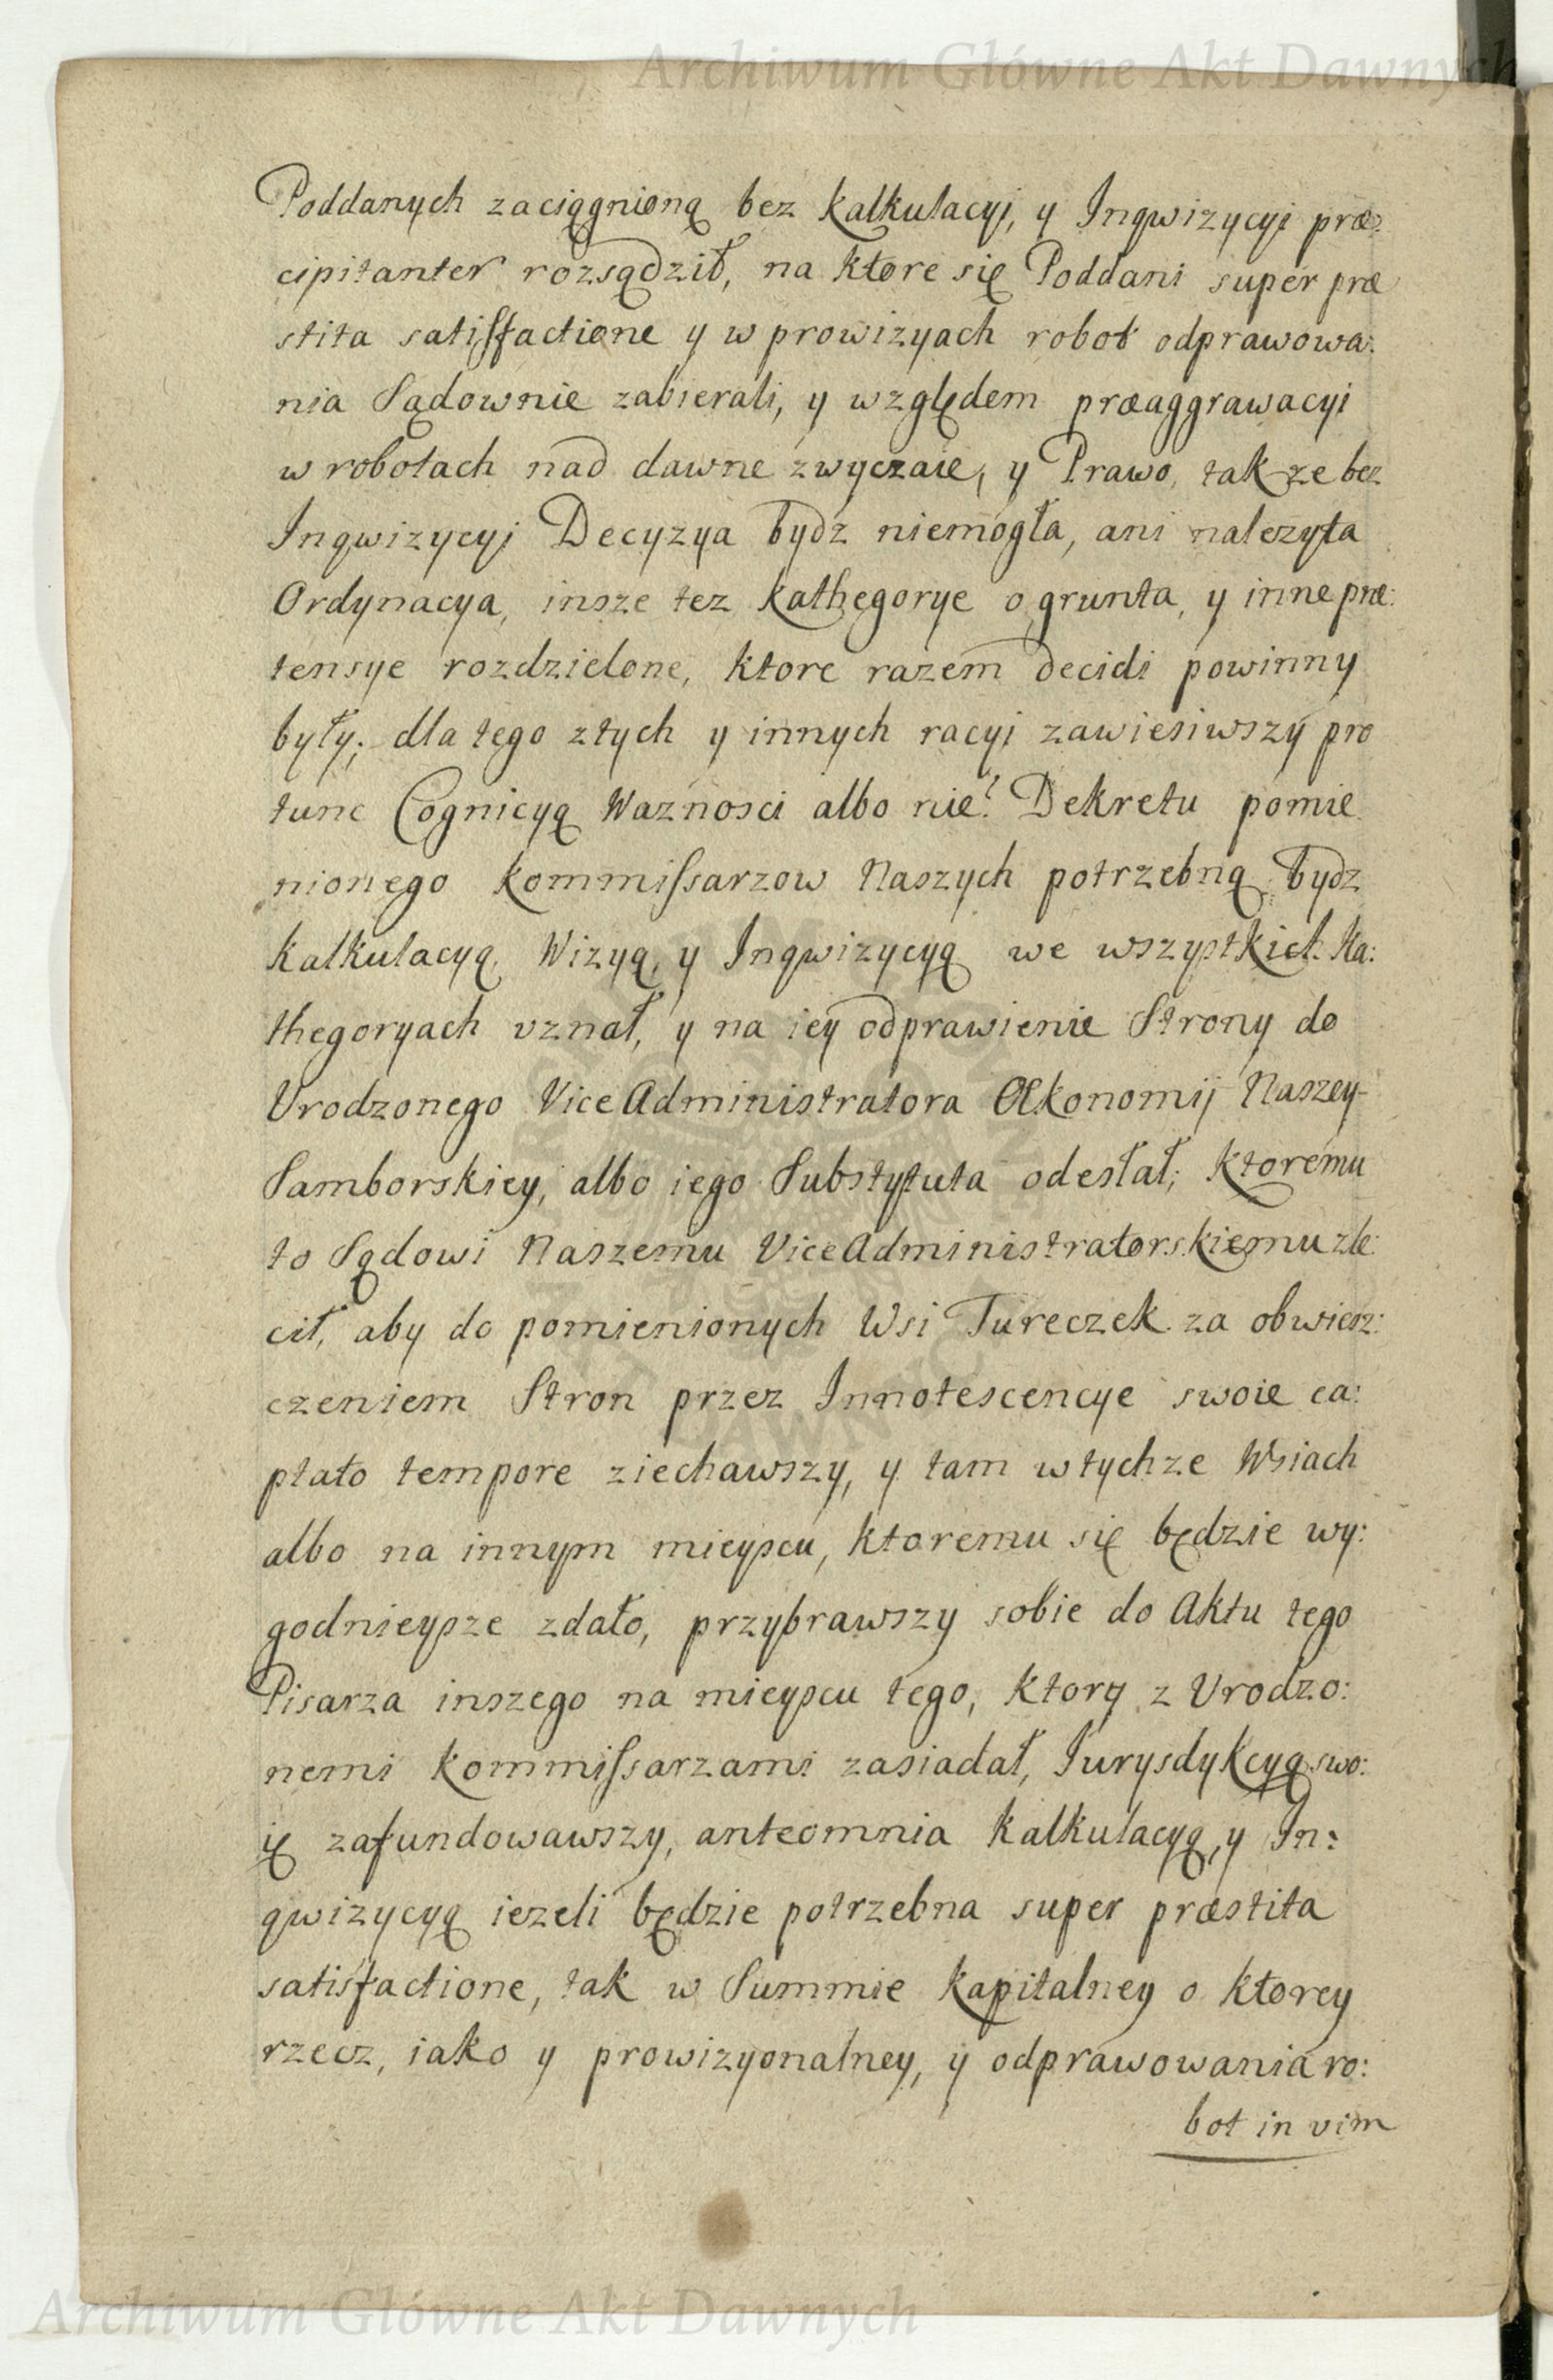 Archiwum Główne Akt Dawnych
Poddanych zaciągnioną bez kalkulacyi, y Inqwizycyi præ:
cipitanter rozsądził, na ktore się Poddani super præ
stita satisfactione y w prowizyach robot odprawowa:
nia Sądownie zabierali, y względem præaggrawacyi
w robotach nad dawne zwyczaie, y Prawo, tak ze bez
Inqwizycyi Decyzya bydz niemogła, ani nalezyta
Ordynacya, insze tez kathegorye o grunta, y inne præ:
tensye rozdzielone, ktore razem decidi powinny
były; dla tego z tych y innych racyi zawiesiwszy pro
tunc Cognicyą Waznosci albo nie? Dekretu pomie
nionego kommissarzow Naszych potrzebną bydz
kalkulacyą, Wizyą, y Inqwizycyą we wszystkich Ka:
thegoryach uznał, y na iey odprawienie Strony do
Urodzonego Vice Administratora Œkonomij Naszey
Samborskiey, albo iego Substytuta odesłał; ktoremu
to Sądowi Naszemu Vice Administratorskiemu zle:
cił, aby do pomienionych Wsi Tureczek za obwiesz:
czeniem Stron przez Innotescencye swoie ca:
ptato tempore ziechawszy, y tam w tychze Wsiach
albo na innym mieyscu, ktoremu się będzie wy:
godnieysze zdało, przybrawszy sobie do Aktu tego
Pisarza inszego na mieyscu tego, ktory z Urodzo:
nemi kommissarzami zasiadał, Jurysdykcyą swo:
ię zafundowawszy, anteomnia kalkulacyą, y In:
qwizycyą iezeli będzie potrzebna super præstita
satisfactione, tak w Summie kapitalney o ktorey
rzecz, iako y prowizyonalney, y odprawowania ro:
bot in vim
Archiwum Główne Akt Dawnych